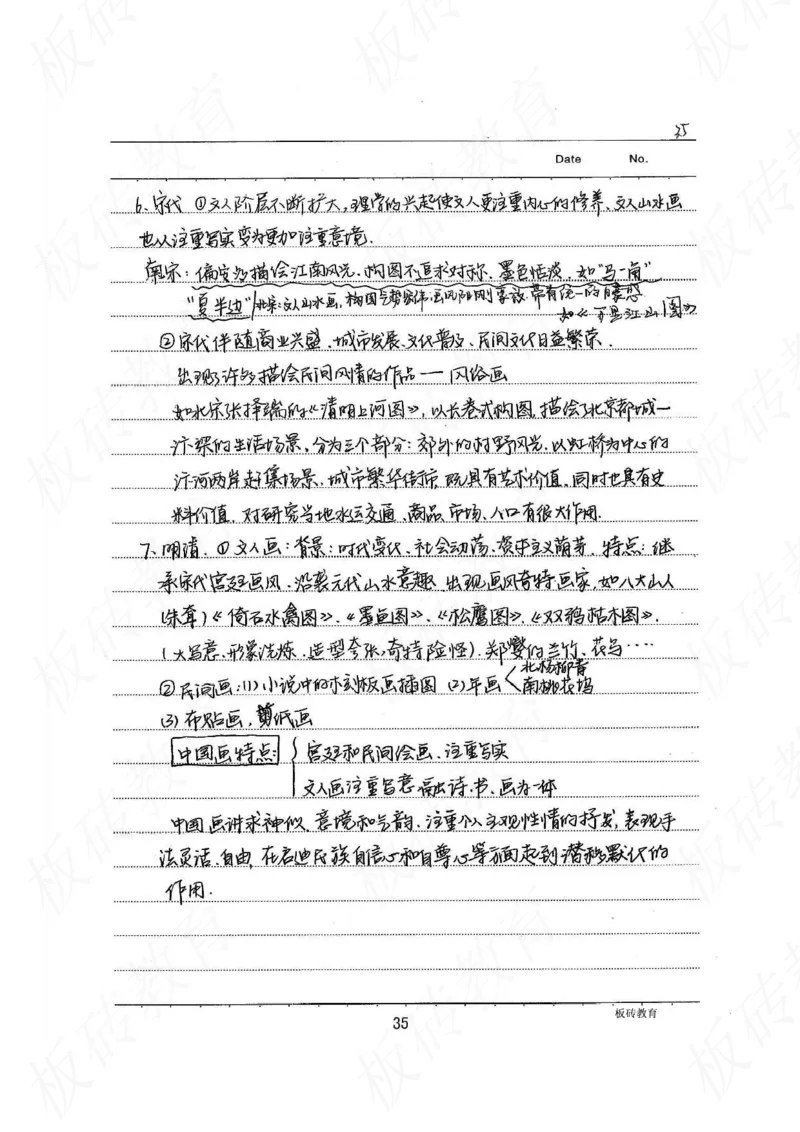 35
Date No.
6、宋代 ①文人阶层不断扩大,理学的兴起使文人更注重内心的修养、文人山水画
也从注重写实变为更加注重意境.
南宋:偏安多描绘江南风光、构图不追求对称、墨色恬淡.如"马一角"
"夏半边" 北宋:文人山水画,构图气势宏伟,画风阳刚 带有统一的
如《千里江山图》
②宋代伴随商业兴盛、城市发展、文化普及、民间文化日益繁荣.
出现了许多描绘民间风情的作品——风俗画
如北宋张择端的《清明上河图》,以长卷式构图,描绘了北京都城一
汴梁的生活场景、分为三个部分:郊外的村野风光、以虹桥为中心的
汴河两岸赶集场景、城市繁华街市,既具有艺术价值,同时也具有史
料价值,对研究当地水运交通、商品、市场、人口有很大作用.
7、明清.①文人画:背景:时代变化、社会动荡、资本主义萌芽.特点:继
承宋代宫廷画风、沿袭元代山水意趣.出现画风奇特画家,如八大山人
(朱耷)《倚石水禽图》、《墨鱼图》、《松鹰图》、《双鸦枯木图》.
(大写意、形象洗炼、造型夸张、奇特险怪).郑燮的兰竹、花鸟····
②民间画:(1)小说中的木刻版画插图 (2)年画<北杨柳青
南桃花坞
(3)布贴画,剪纸画
中国画特点: 宫廷和民间绘画、注重写实
文人画注重写意、融诗、书、画为一体
中国画讲求神似、意境和气韵、注重个人主观性情的抒发,表现手
法灵活、自由,在启迪民族自信心和自尊心等方面起到潜移默化的
作用.
板砖教育
35